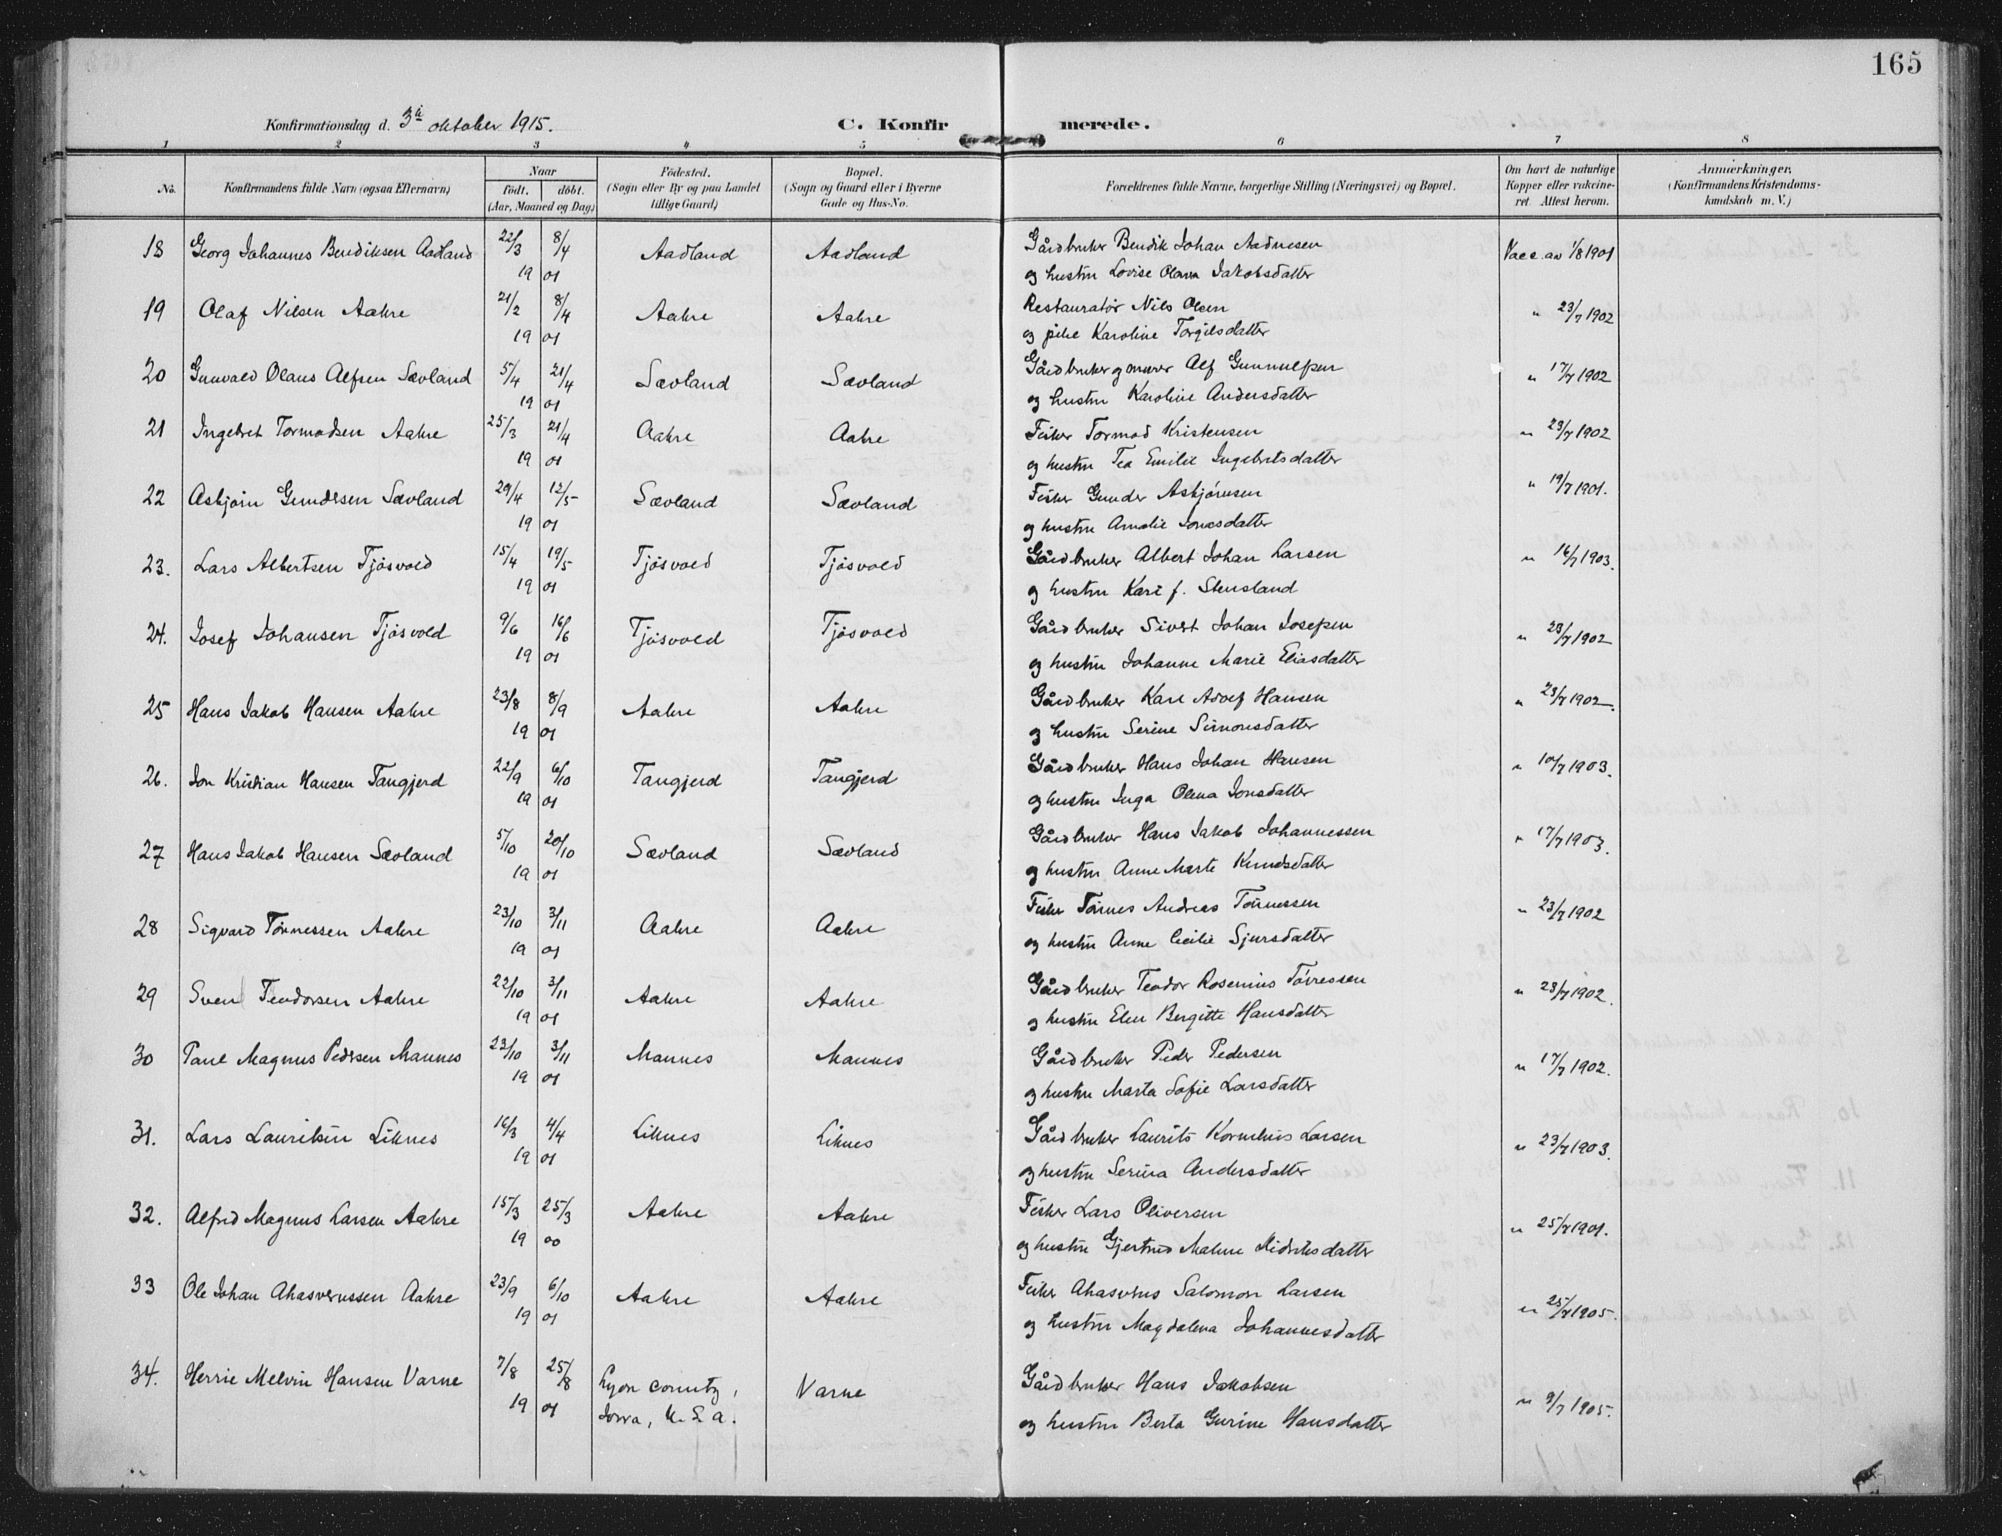 165
Konfirmationsdag d. 3die oktober 1915. C. Konfirmerede.
1 2 3 4 5 6 7 8
No. Konfirmandens fulde Navn (ogsaa Efternavn) Naar Födested. Bopæl. Forældrenes fulde Navne, borgerlige Stilling (Næringsvei) og Bopæl. Om havt de naturlige Anmærkninger,
födt. döbt. (Sogn eller By og paa Landet (Sogn og Gaard eller i Byerne Kopper eller vakcine- (Konfirmandens Kristendoms-
(Aar, Maaned og Dag) tillige Gaard) Gade og Hus-No. ret. Attest herom. kundskab m. V.)
18 Georg Johannes Bendiksen Aadland 22/3 8/4 Aadland Aadland Gårdbruker Bendik Johan Aadnesen Vacc. av 1/8 1901
19 01 og hustru Lovise Olava Jakobsdatter
19 Olaf Nilsen Aakre 21/2 8/4 Aakre Aakre Restauratør Nils Olsen " 23/7 1902
19 01 og pike Karoline Torgilsdatter
20 Gunvald Olaus Alfsen Sævland 5/4 21/4 Sævland Sævland Gårdbruker og murer Alf Gunnulfsen " 17/7 1902
19 01 og hustru Karoline Andersdatter
21 Ingebret Tormodsen Aakre 25/3 21/4 Aakre Aakre Fisker Tormod Kristensen " 23/7 1902
19 01 og hustru Tea Emilie Ingebretsdatter
22 Asbjørn Gundersen Sævland 29/4 12/5 Sævland Sævland Fisker Gunder Asbjørnsen " 19/7 1901.
19 01 og hustru Amalie Jonasdatter
23. Lars Albertsen Tjøsvold 15/4 19/5 Tjøsvold Tjøsvold Gårdbruker Albert Johan Larsen " 16/7 1903.
19 01 og hustru Kari f. Stensland
24. Josef Johansen Tjøsvold 9/6 16/6 Tjøsvold Tjøsvold Gårdbruker Sivert Johan Josefsen " 23/7 1902
19 01 og hustru Johanne Marie Eliasdatter
25 Hans Jakob Hansen Aakre 23/8 8/9 Aakre Aakre Gårdbruker Karl Adolf Hansen " 23/7 1902.
19 01 og hustru Serine Simonsdatter
26. Jon Kristian Hansen Tangjerd 22/9 6/10 Tangjerd Tangjerd Gårdbruker Hans Johan Hansen " 10/7 1903.
19 01 og hustru Inga Olena Jonsdatter
27 Hans Jakob Hansen Sævland 5/10 20/10 Sævland Sævland Gårdbruker Hans Jakob Johannessen " 17/7 1903.
19 01 og hustru Anne Marte Knudsdatter
28 Sigvard Tønnessen Aakre 23/10 3/11 Aakre Aakre Fisker Tønnes Andreas Tønnessen " 23/7 1902
19 01 og hustru Anne Cecilie Sjursdatter
29 Sven Teodorsen Aakre 22/10 3/11 Aakre Aakre Gårdbruker Teodor Rosenius Tørressen " 23/7 1902.
19 01 og hustru Elen Bergitte Hansdatter
30 Paul Magnus Pedersen Mannes 23/10 3/11 Mannes Mannes Gårdbruker Peder Pedersen " 17/7 1902.
19 01 og hustru Marta Sofie Larsdatter
31. Lars Lauritsen Liknes 16/3 4/4 Liknes Liknes Gårdbruker Laurits Kornelius Larsen " 23/7 1903.
19 01 og hustru Serina Andersdatter
32. Alfred Magnus Larsen Aakre 15/3 25/3 Aakre Aakre Fisker Lars Oliversen " 25/7 1901.
19 00 og hustru Gjertrud Malene Didriksdatter
33 Ole Johan Ahasverussen Aakre 23/9 6/10 Aakre Aakre Fisker Ahasverus Salomon Larsen " 25/7 1905.
19 01 og hustru Magdalena Johannesdatter
34. Herrie Melvin Hansen Varne 7/8 25/8 Lyon county, Varne Gårdbruker Hans Jakobsen " 9/7 1905.
19 01 Iowa, U. S. A. og hustru Berta Gurine Hansdatter